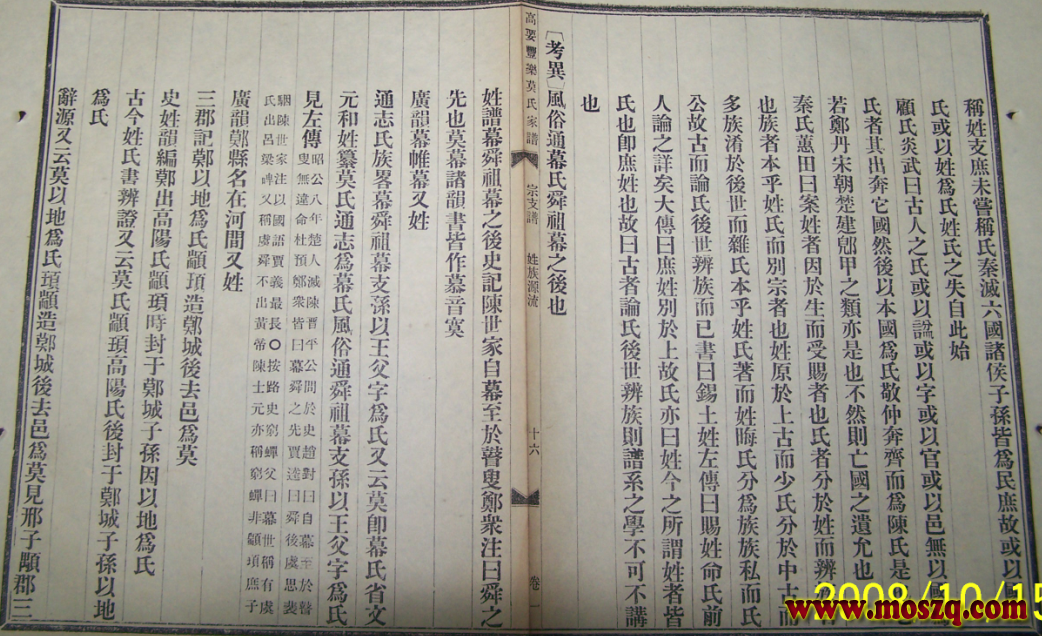 稱姓支庶未嘗稱氏秦滅六國諸侯子孫皆爲民庶故或以
氏或以姓爲氏姓氏之失自此始
顧氏炎武曰古人之氏或以諡或以字或以官或以邑無以國
氏者其出奔它國然後以本國爲氏敬仲奔齊而爲陳氏是
若鄭丹宋朝楚建郳甲之類亦是也不然則亡國之遺允也
秦氏蕙田曰案姓者因於生而受賜者也氏者分於姓而辨
也族者本乎姓氏而別宗者也姓原於上古而少氏分於中古而
多族淆於後世而雜氏本乎姓氏著而姓晦氏分爲族族私而氏
公故古而論氏後世辨族而已書曰錫土姓左傳曰賜姓命氏前
人論之詳矣大傳曰庶姓別於上故氏亦曰姓今之所謂姓者皆
氏也卽庶姓也故曰古者論氏後世辨族則譜系之學不可不講
也
〔考異〕風俗通幕氏舜祖幕之後也
高要豐樂莫氏家譜 宗支譜 姓族源流 十六 卷一
姓譜幕舜祖幕之後史記陳世家自幕至於瞽叟鄭衆注曰舜之
先也莫幕諸韻書皆作慕音寞
廣韻幕帷幕又姓
通志氏族畧幕舜祖幕支孫以王父字爲氏又云莫卽幕氏省文
元和姓纂莫氏通志爲幕氏風俗通舜祖幕支孫以王父字爲氏
見左傳昭公八年楚人滅陳晋平公問於史趙對曰自幕至於瞽
叟無違命杜預鄭衆皆曰幕舜之先賈逵曰舜後虞思裴
駰陳世家注以國語賈義最長〇按路史窮蟬父曰幕世稱有虞
氏出呂梁碑又稱虞舜不出黃帝陳士元亦稱窮蟬非顓頊庶子
廣韻鄚縣名在河間又姓
三郡記鄚以地爲氏顓頊造鄚城後去邑爲莫
史姓韻編鄚出高陽氏顓頊時封于鄚城子孫因以地爲氏
古今姓氏書辨證又云莫氏顓頊高陽氏後封于鄚城子孫以地
爲氏
辭源又云莫以地爲氏頊顓造鄚城後去邑爲莫見邢子顒郡三
2008/10/15
www.moszq.com